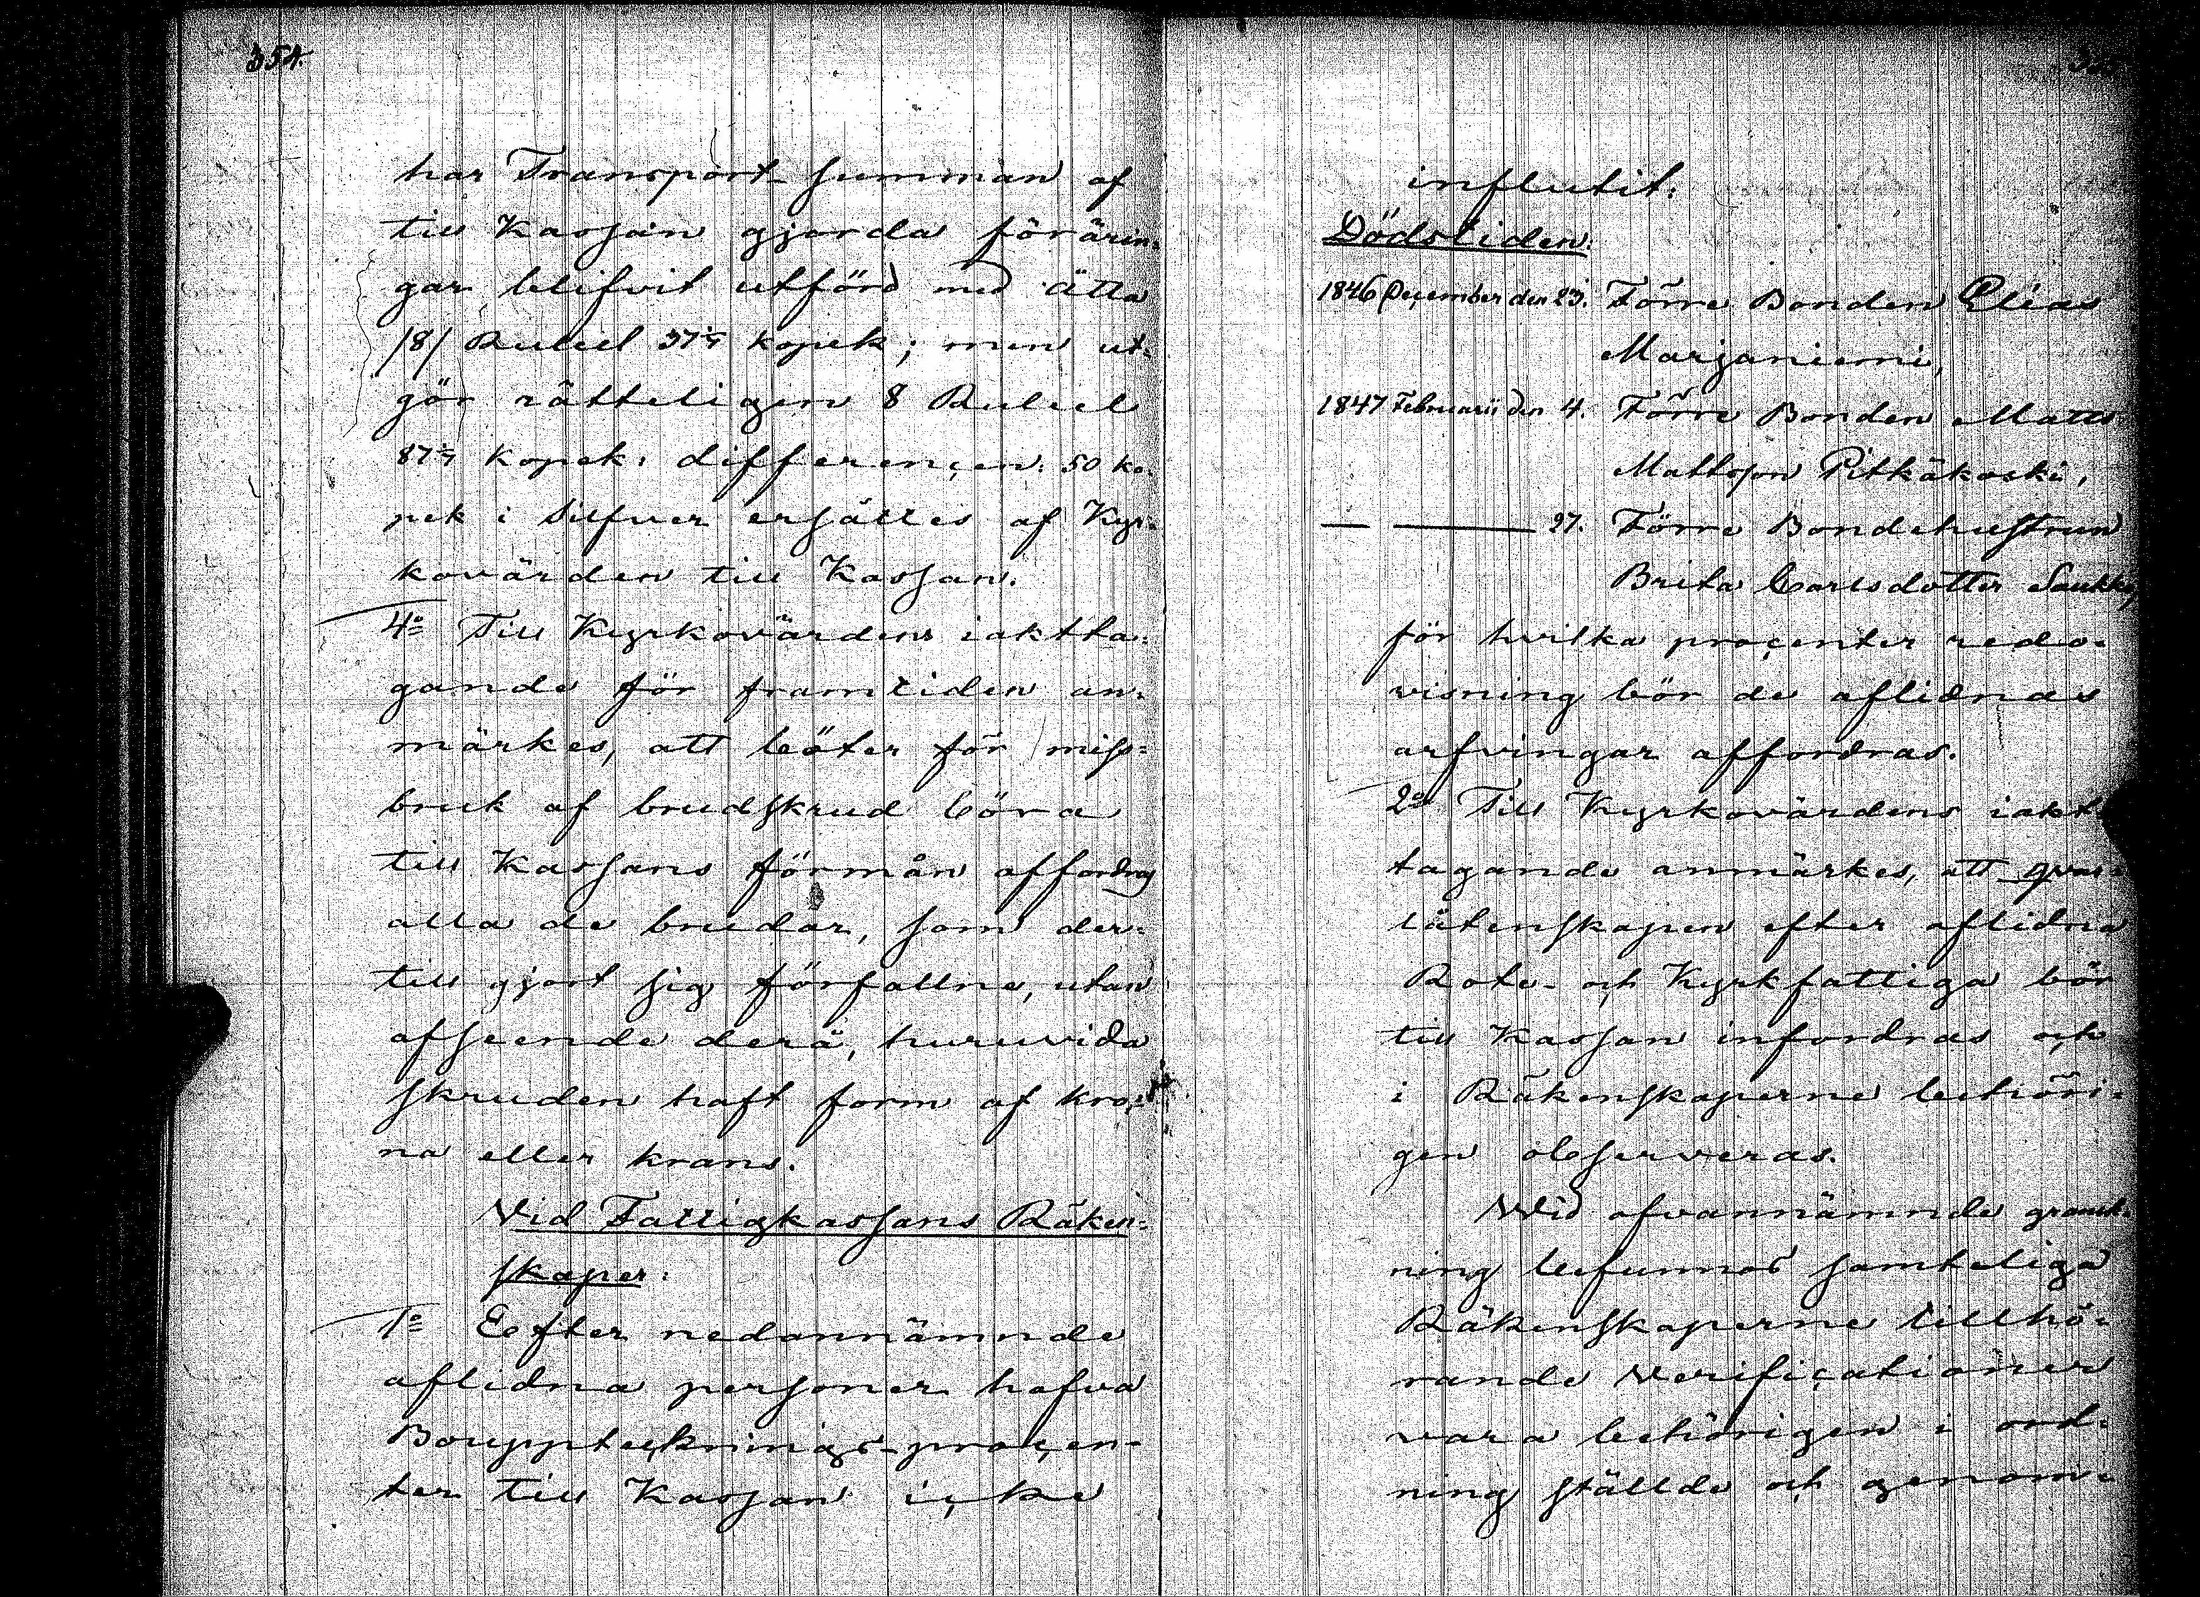 354.
har Transport-summan af
till Kassan gjorda förärin-
gar blifvit utförd med åtta
/8/ Rubel 37 1/7 kopek; men ut-
gör rätteligen 8 Rubel
87 1/7 kopek: differencen: 50 ko-
pek i Silfver ersättes af Kyr-
kovärden till Kassan.
4o Till Kyrkovärdens iaktta-
gande för framtiden an-
märkes, att böter för miss-
bruk af brudskrud böra
till Kassans förmån affordras
alla de brudar, som der-
till gjort sig förfallne, utan
afseende derå, huruvida
skruden haft form af kro-
na eller krans.
Vid Fattigkassans Räken-
skaper:
1o Efter nedannämnde
aflidna personer hafva
Boupptecknings-procen-
ter till Kassan icke
influtit:
Dödstiden.
1846 December den 23. Förre Bonden Elias
Marjaniemi,
1847 Februarii den 4. Förre Bonden Matts
Mattsson Pitkäkoski,
— — 27. Förre Bondehustrun
Brita Carlsdotter Saukko,
för hvilka procenter redo-
visning bör de aflidnas
arfvingar affordras.
2o Till Kyrkovärdens iakt-
tagande anmärkes, att qvar-
låtenskapen efter aflidna
Rote- och Kyrkfattiga bör
till Kassan infordras och
i Räkenskaperne behöri-
gen observeras.
Wid ofvannämnde gransk-
ning befunnos samteliga
Räkenskaperne tillhö-
rande Verificationer
vara behörigen i ord-
ning ställde och genom-